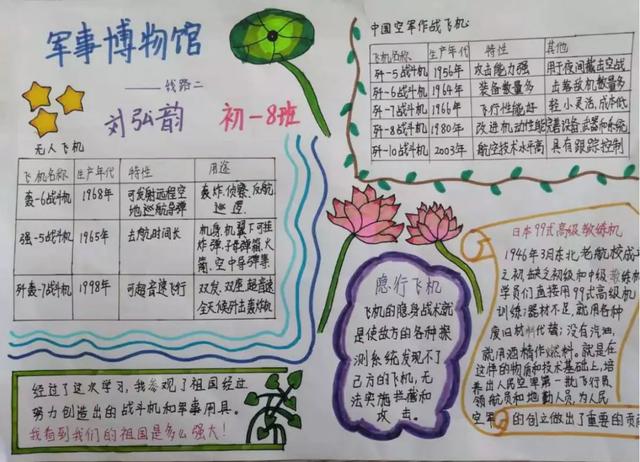 军事博物馆
——线路二
刘弘韵 初一8班
无人飞机
飞机名称 生产年代 特性 用途
轰-6战斗机 1968年 可发射远程空地巡航导弹 轰炸、侦察、反航巡逻
强-5战斗机 1965年 去航时间长 机身、机翼下可挂炸弹、子母弹箭、火箭、空中导弹等
歼轰-7战斗机 1998年 可超音速飞行 双发、双座、超音速全天候歼击轰炸机
经过了这次学习,我参观了祖国经过
努力创造出的战斗机和军事用具。
我看到我们的祖国是多么强大!
中国空军作战飞机:
飞机名称 生产年代 特性 其他
歼-5战斗机 1956年 攻击能力强 用于夜间截击空战
歼-6战斗机 1964年 装备数量多 击落敌机数量多
歼-7战斗机 1966年 飞行性能好 轻小灵活,成本低
歼-8战斗机 1980年 改进机动性能 设备武器和系统
歼-10战斗机 2003年 航空技术水平高 具有跟踪控制
隐行飞机
飞机的隐身战术就
是使敌方的各种探
测系统发现不了
己方的飞机,无
法实施拦截和
攻击。
日本99式高级教练机
1946年3月东北老航校成
之初缺乏初级和中级教练
学员们直接用99式高级机
训练:器材不足,就用各种
废旧材料代替;没有汽油,
就用酒精作燃料。就是在
这样的物质和技术基础上,培
养出人民空军第一批飞行员
领航员和地勤人员,为人民
空军的创立做出了重要的贡献